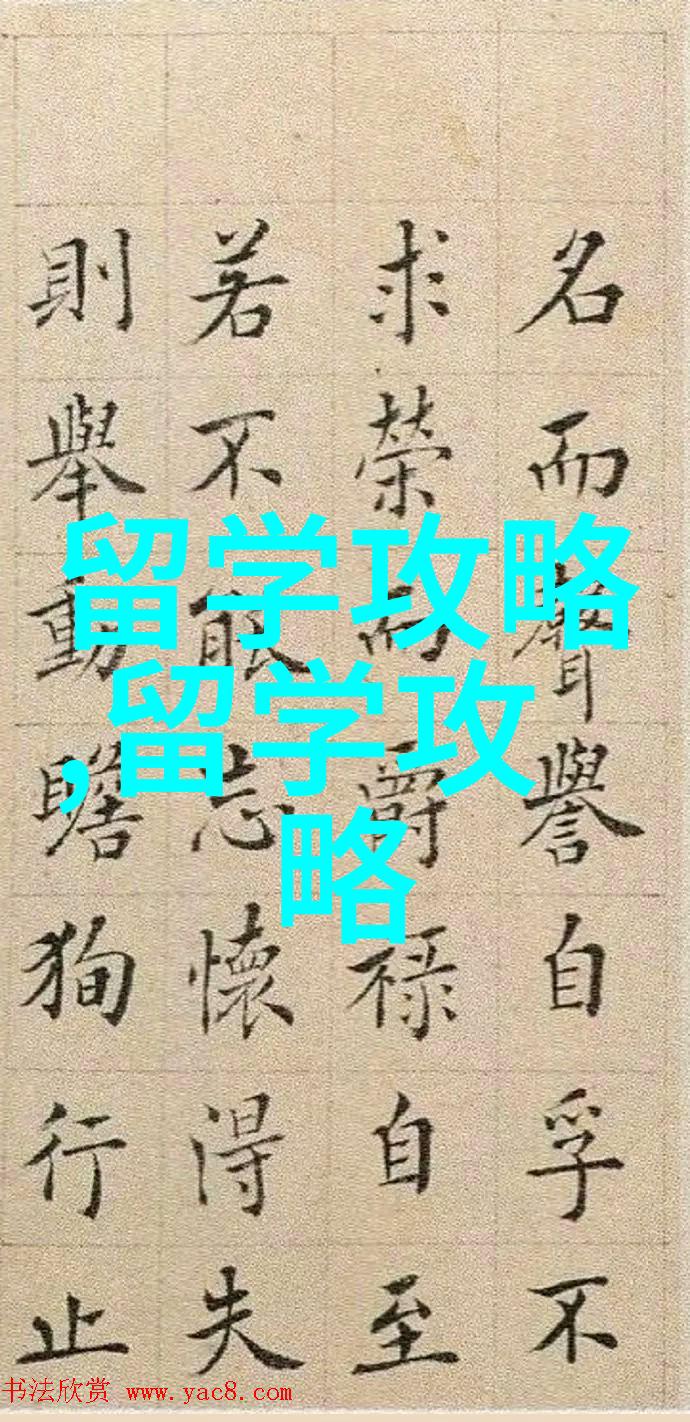 名而聲譽自孚不
求榮而爵祿自至
若不能忘懷得失
則舉動瞻狥行止
留学攻略
,留学攻
略
书法欣赏 www.yac8.com